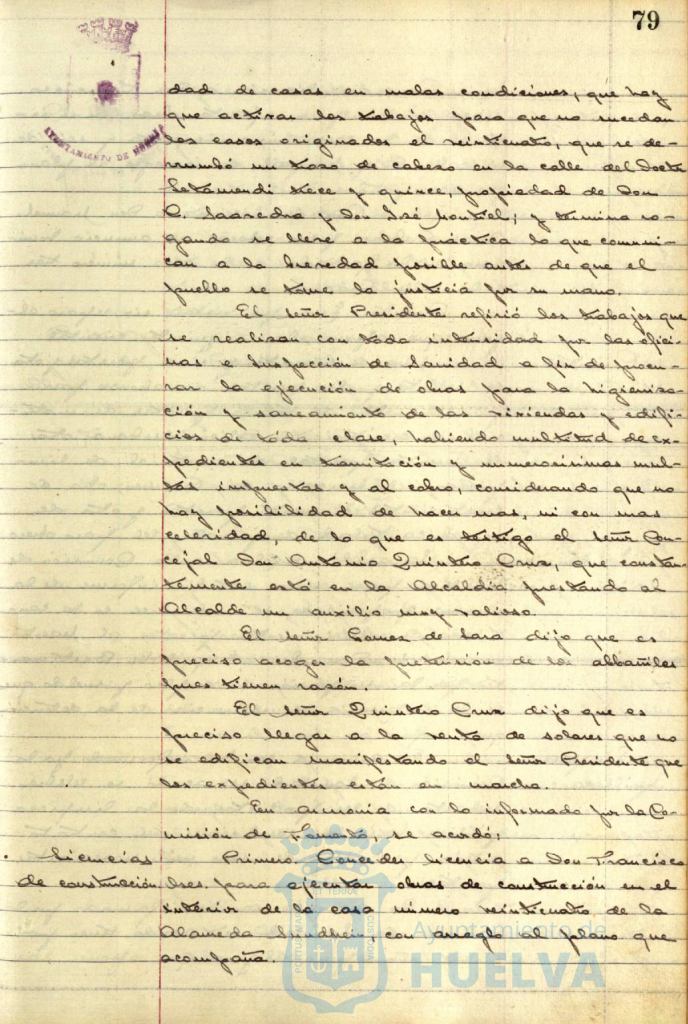 79
AYUNTAMIENTO DE HUELVA
dad de casas en malas condiciones, que hay
que activar los trabajos para que no sucedan
los casos originados el veinticuatro, que se de-
rrumbó un trozo de cabezo en la calle del Doctor
Letamendi trece y quince, propiedad de Don
C. Saavedra y Don José Montiel; y termina ro-
gando se lleve a la práctica lo que comuni-
can a la brevedad posible antes de que el
pueblo se tome la justicia por su mano.
El señor Presidente refirió los trabajos que
se realizan con toda intensidad por las ofici-
nas e Inspección de Sanidad a fin de procu-
rar la ejecución de obras para la higieniza-
ción y saneamiento de las viviendas y edifi-
cios de tóda clase, habiendo multitud de ex-
pedientes en tramitación y numerosísimas mul-
tas impuestas y al cobro, considerando que no
hay posibilidad de hacer mas, ni con mas
celeridad, de lo que es testigo el señor Con-
cejal Don Antonio Quintero Cruz, que constan-
temente está en la Alcaldía prestando al
Alcalde un auxilio muy valioso.
El señor Gomez de Lara dijo que es
preciso acoger la pretensión de los albañiles
pues tienen razón.
El señor Quintero Cruz dijo que es
preciso llegar a la venta de solares que no
se edifican manifestando el señor Presidente que
los expedientes están en marcha.
En armonia con lo informado por la Co-
misión de Fomento, se acordó:
Licencias
de construcción
Primero. Conceder licencia a Don Francisco
para ejecutar obras de construcción en el
interior de la casa número veinticuatro de la
Alameda Sundhein, con arreglo al plano que
acompaña.
Ayuntamiento de
HUELVA